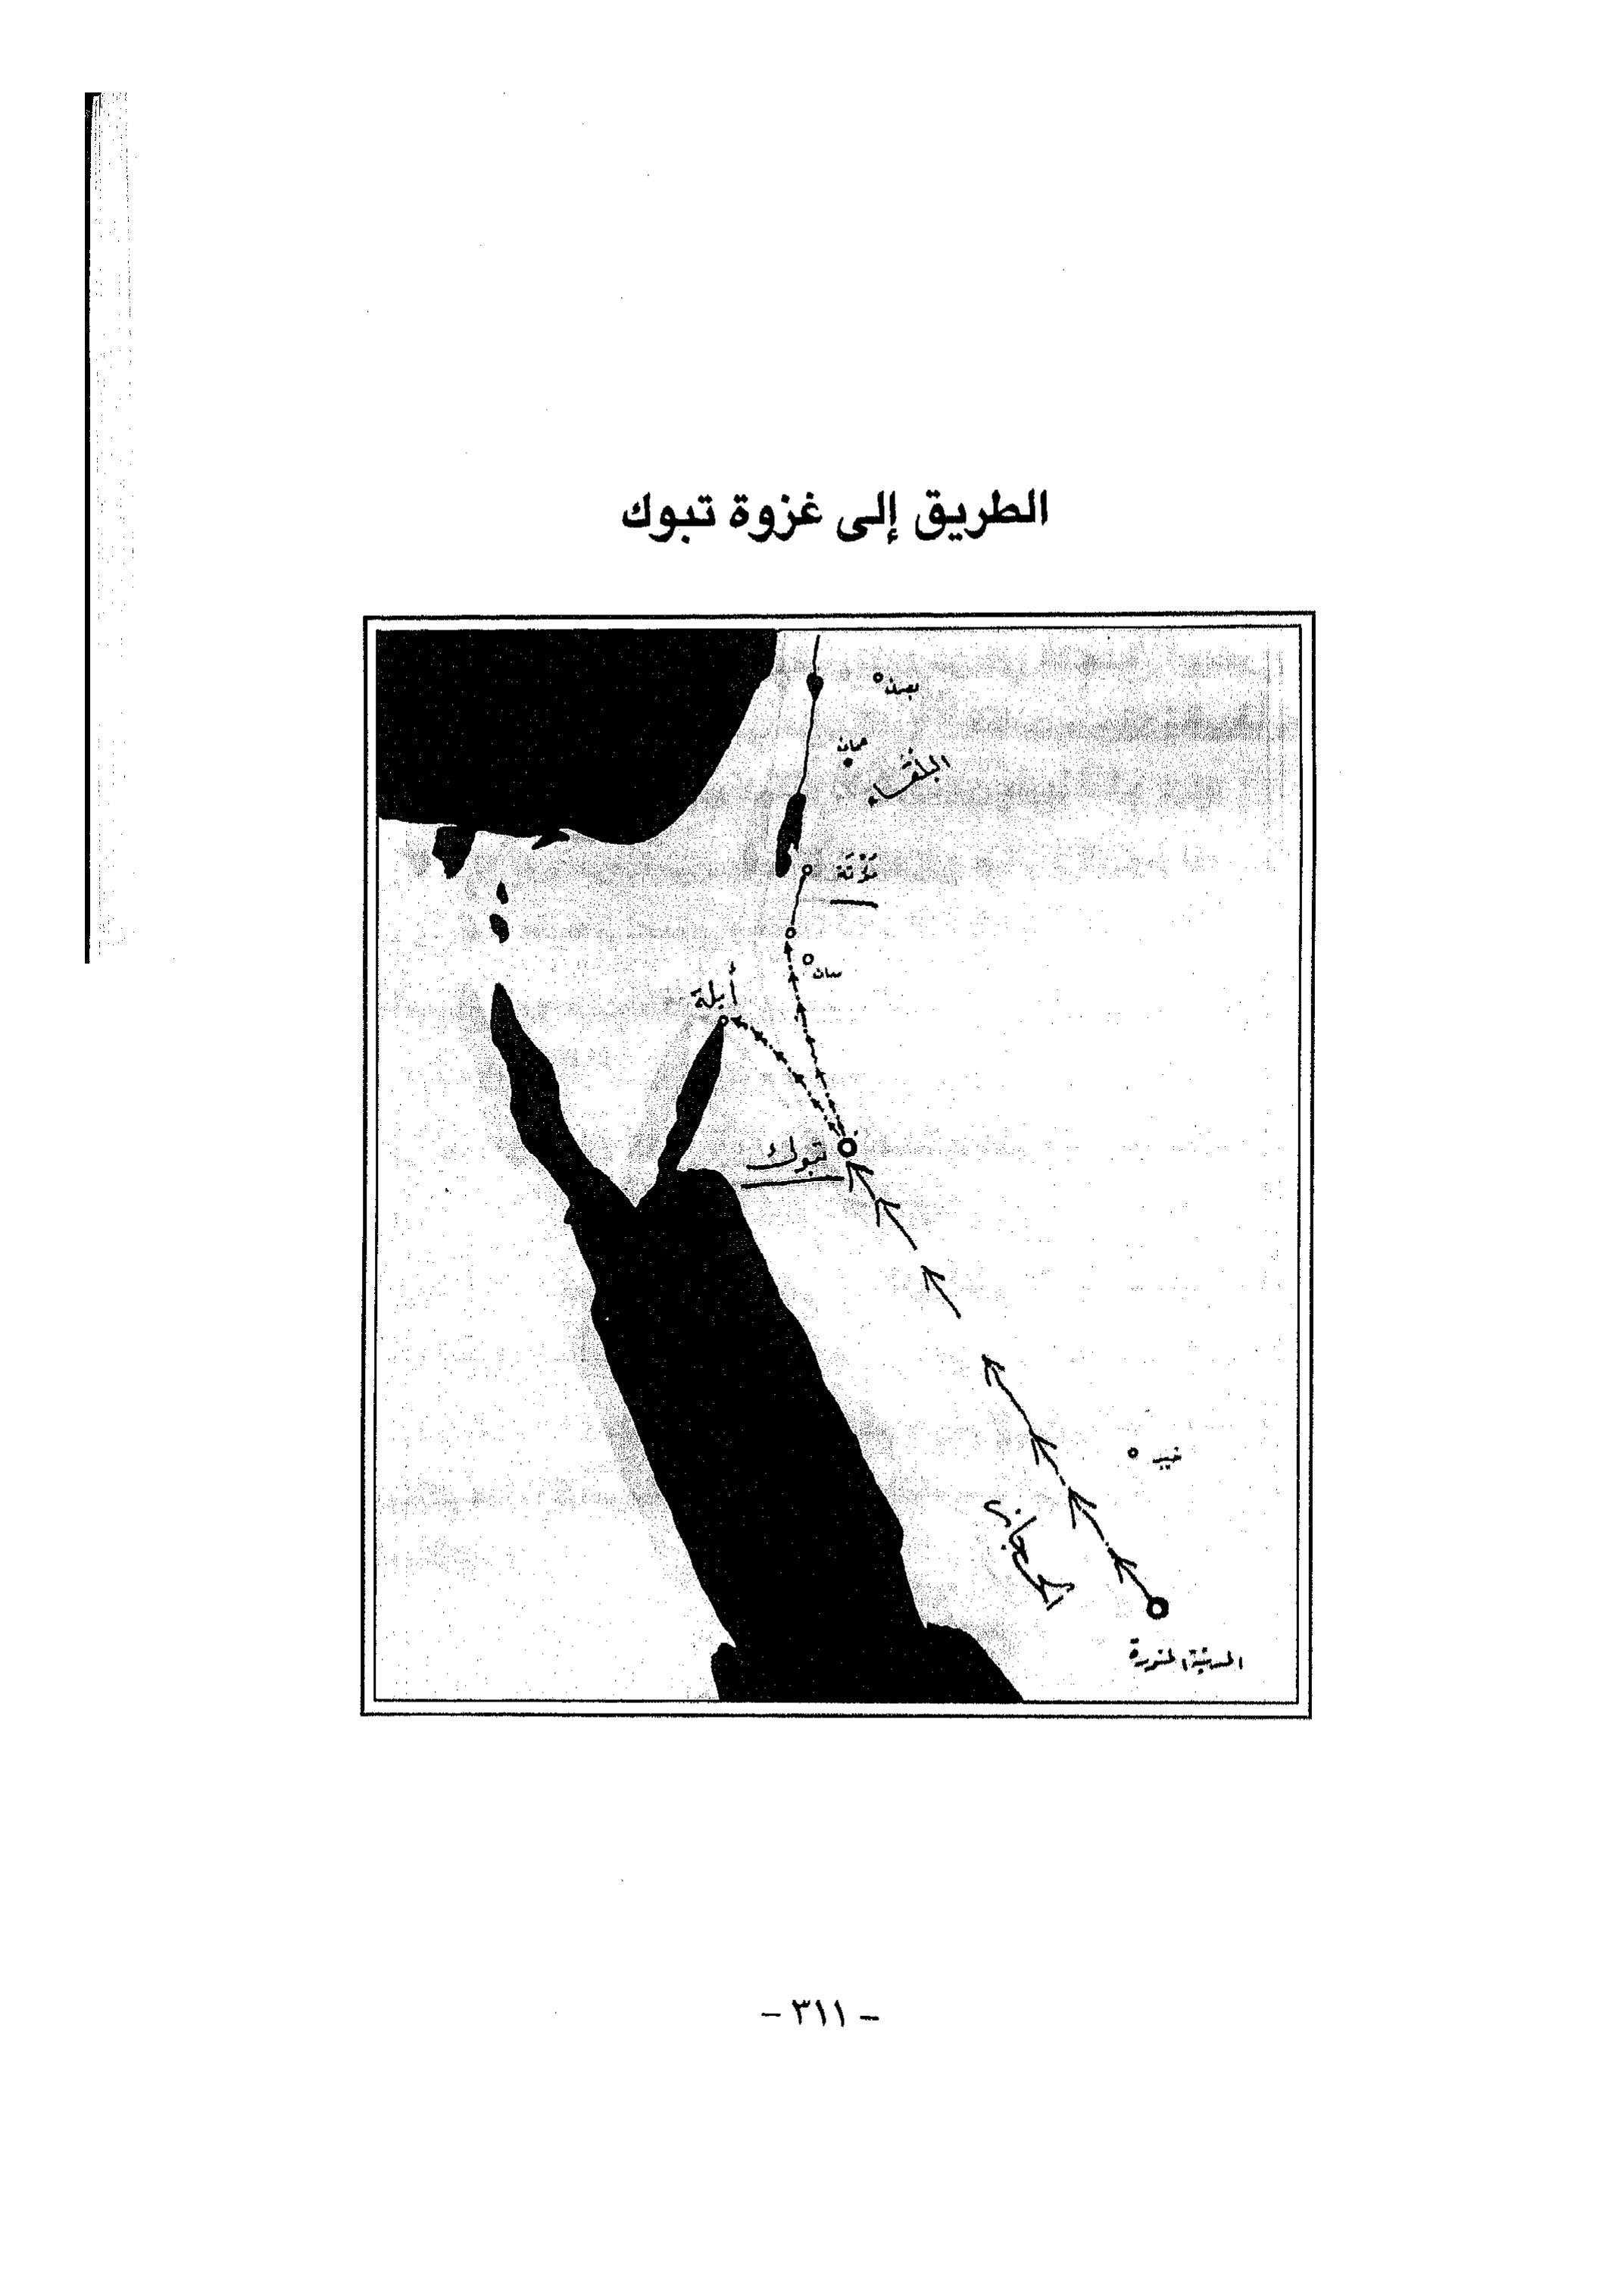 الطريق إلى غزوة تبوك
عمان
البلقاء
مؤتة
أيلة
تبوك
خيبر
الحجاز
المدينة المنورة
- ٣١١ -